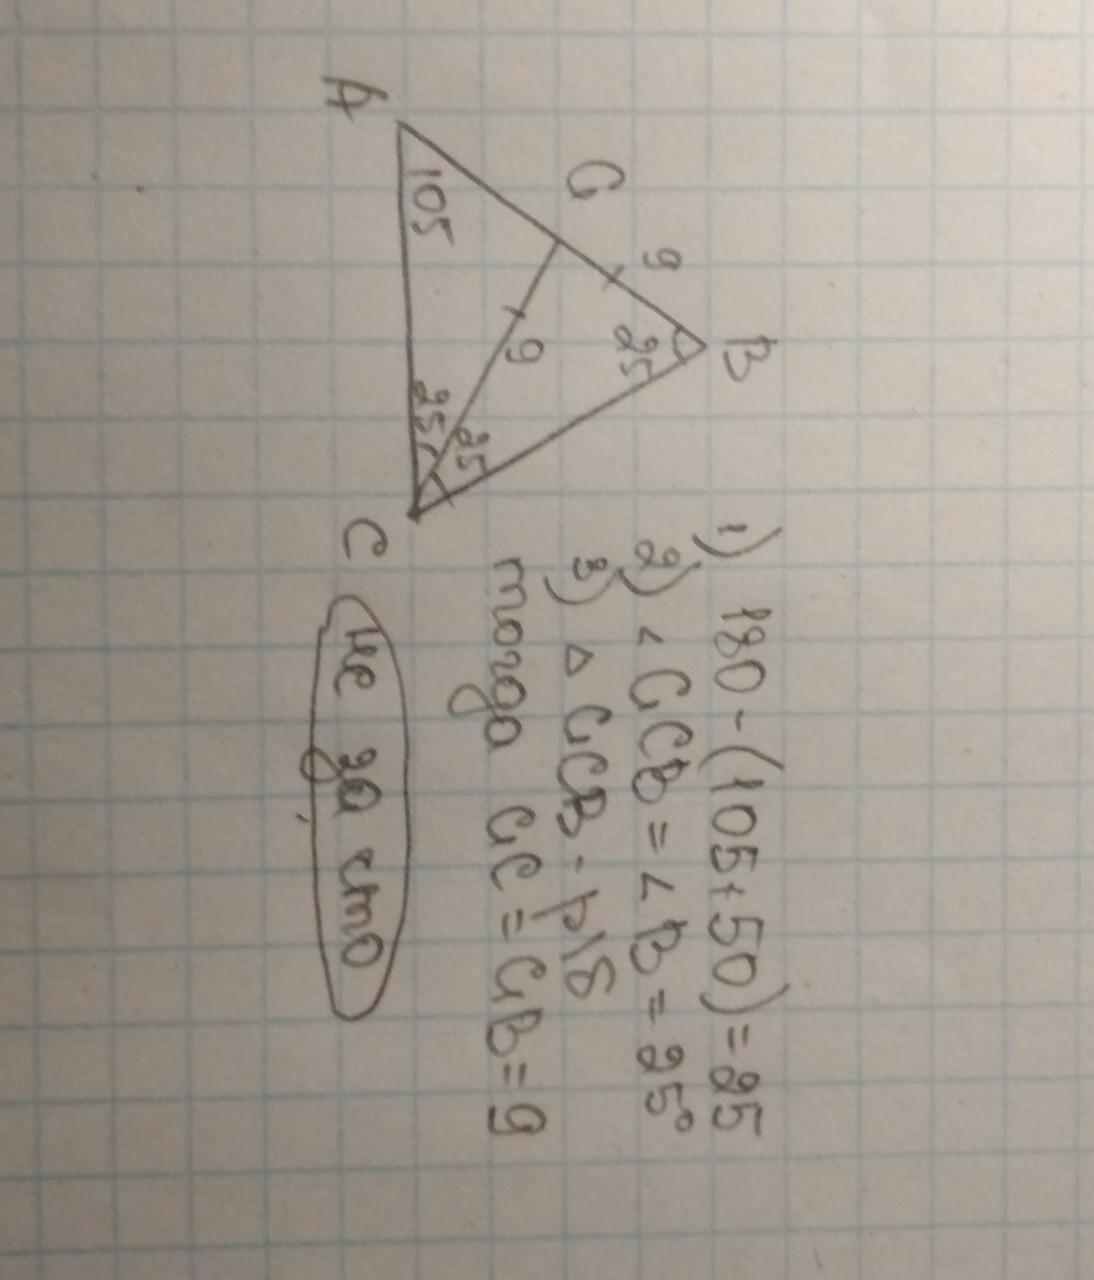 A
G
B
C
105
9
9
25
25
25
1) 180-(105+50)=25
2) ∠GCB=∠B=25°
3) △GCB - р/б
тогда GC=GB=9
не за что